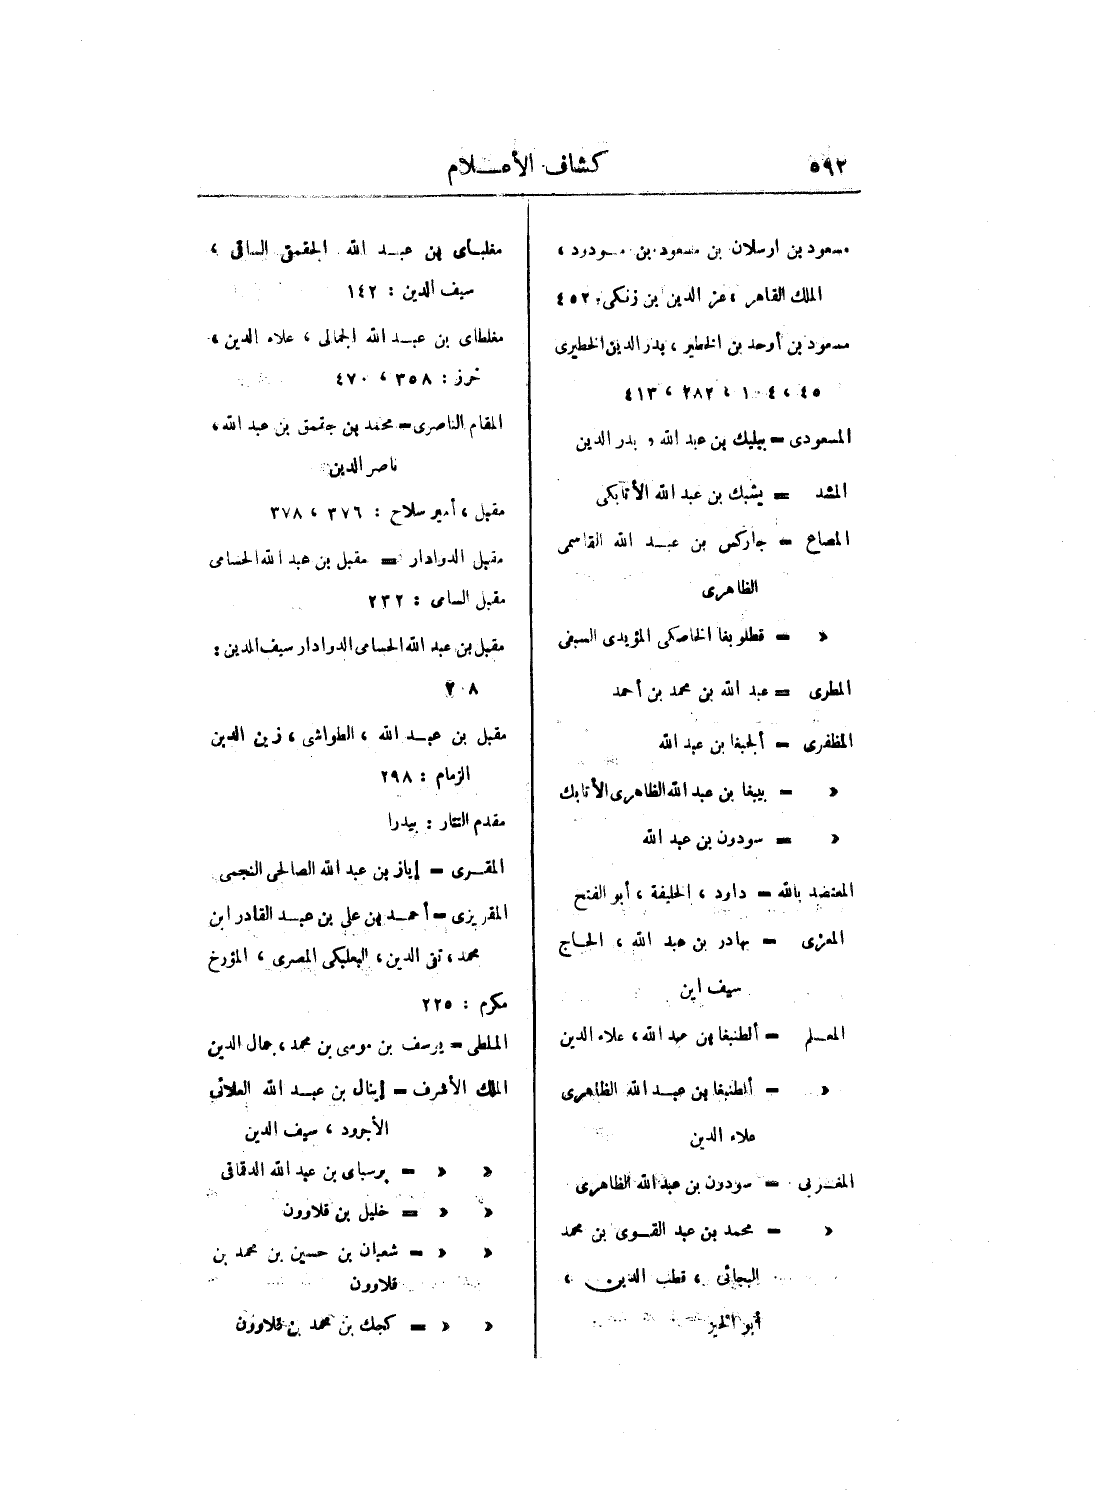 ٥٩٢
كشاف الأعلام
مسعود بن ارسلان بن مسعود بن مودود ،
الملك القاهر ، عز الدين بن زنكى : ٤٥٢
مسعود بن أوحد بن الخطير ، بدر الدين الخطيرى
٤٥ ، ١٠٤ ، ٢٨٢ ، ٤١٣
المسعودى = بيليك بن عبد الله و بدر الدين
المشد = يشبك بن عبد الله الأتابكى
المصاع = جاركس بن عبد الله القاسمى
الظاهرى
« = قطلوبغا الخاصكى المؤيدى السيفى
المطرى = عبد الله بن محمد بن أحمد
المظفرى = ألجبغا بن عبد الله
« = بيبغا بن عبد الله الظاهرى الأتابك
« = سودون بن عبد الله
المعتضد بالله = داود ، الخليفة ، أبو الفتح
المعزى = بهادر بن عبد الله ، الحاج
سيف اين
المعلم = ألطنبغا بن عبد الله ، علاء الدين
« = ألطنبغا بن عبد الله الظاهرى
علاء الدين
المغربى = سودون بن عبد الله الظاهرى
« = محمد بن عبد القوى بن محمد
البجائى ، قطب الدين ،
أبو الخير
مغلباى بن عبد الله الجقمقى الساقى ،
سيف الدين : ١٤٢
مغلطاى بن عبد الله الجمالى ، علاء الدين ،
خرز : ٣٥٨ ، ٤٧٠
المقام الناصرى = محمد بن جقمق بن عبد الله ،
ناصر الدين
مقبل ، أمير سلاح : ٣٧٦ ، ٣٧٨
مقبل الدوادار = مقبل بن عبد الله الحسامى
مقبل السامى : ٢٣٢
مقبل بن عبد الله الحسامى الدوادار سيف الدين :
٢٠٨
مقبل بن عبد الله ، الطواشى ، زين الدين
الزمام : ٢٩٨
مقدم التتار : بيدرا
المقرى = إياز بن عبد الله الصالحى النجمى
المقريزى = أحمد بن على بن عبد القادر ابن
محمد ، تقى الدين ، البعلبكى المصرى ، المؤرخ
مكرم : ٢٢٥
الملطى = يوسف بن موسى بن محمد ، جمال الدين
الملك الأشرف = إينال بن عبد الله العلائى
الأجرود ، سيف الدين
« « = برسباى بن عبد الله الدقماقى
« « = خليل بن قلاوون
« « = شعبان بن حسين بن محمد بن
قلاوون
« « = كجك بن محمد بن قلاوون